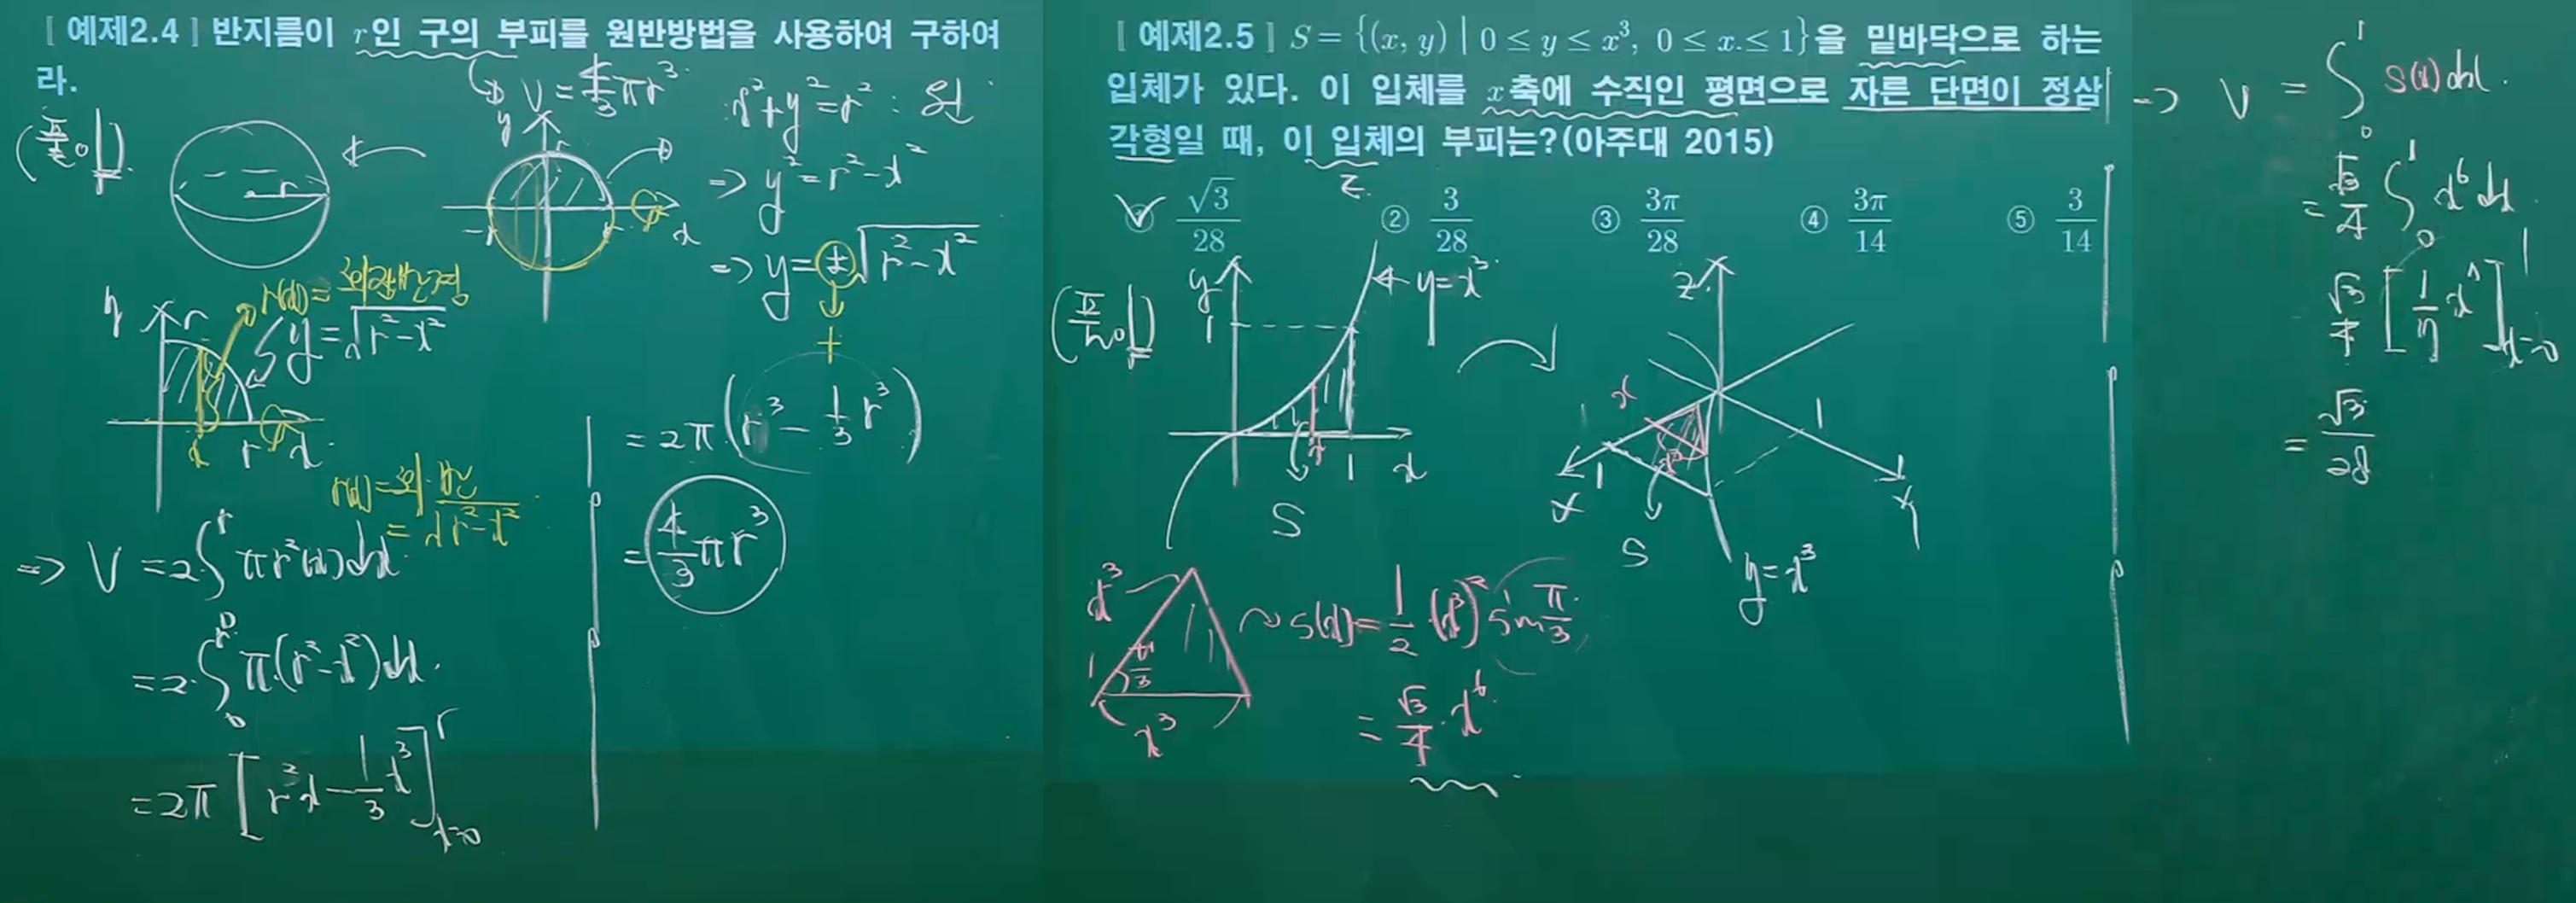 [ 예제2.4 ] 반지름이 r인 구의 부피를 원반방법을 사용하여 구하여
라.
V = 4/3 πr³
(풀이)
r
y
r
-r
r
x
x²+y²=r² : 원
=> y²=r²-x²
=> y=±√(r²-x²)
+
y
r
r(x)=회전반경
y=√(r²-x²)
x
r
x
r(x)=회전반경
=√(r²-x²)
=> V = 2∫₀ʳ πr²(x)dx
= 2·∫₀ʳ π(r²-x²)dx.
= 2π [r²x - 1/3 x³]ʳₓ₌₀
= 2π (r³ - 1/3 r³)
= 4/3 πr³
[ 예제2.5 ] S = {(x, y) | 0 ≤ y ≤ x³, 0 ≤ x ≤ 1}을 밑바닥으로 하는
입체가 있다. 이 입체를 x축에 수직인 평면으로 자른 단면이 정삼
각형일 때, 이 입체의 부피는?(아주대 2015)
① √3/28 ② 3/28 ③ 3π/28 ④ 3π/14 ⑤ 3/14
(풀이)
y
1
y=x³
x
1
x
S
z
x
1
1
x
y
S
y=x³
x³
π/3
x³
~ S(x) = 1/2 (x³)² sin π/3
= √3/4 · x⁶
=> V = ∫₀¹ S(x)dx.
= √3/4 ∫₀¹ x⁶dx.
√3/4 [1/7 x⁷]¹ₓ₌₀
= √3/28